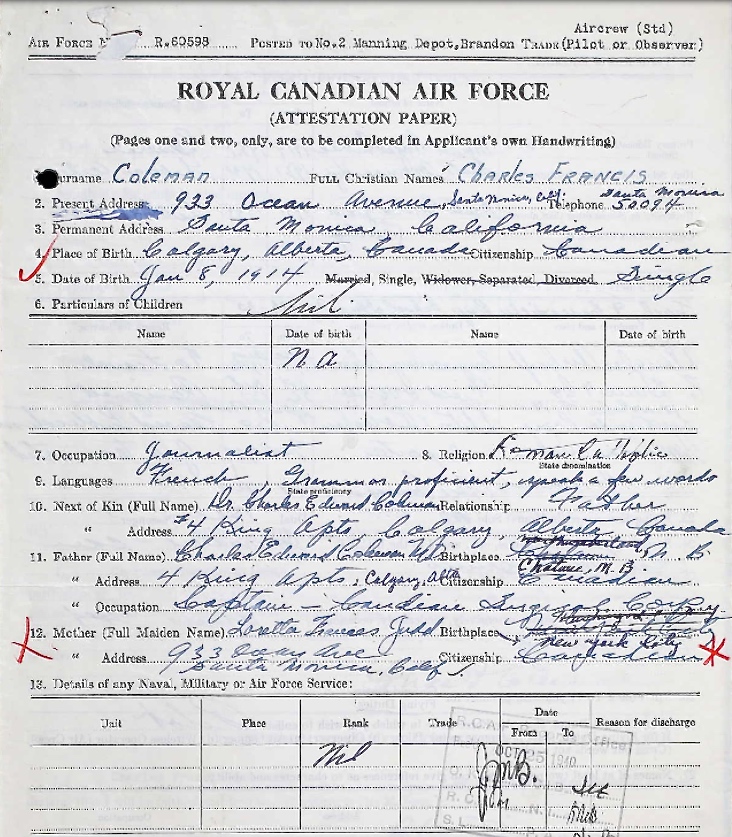 Aircrew (Std)
AIR FORCE R.60598 POSTED TO No.2 Manning Depot, Brandon TRADE (Pilot or Observer)
ROYAL CANADIAN AIR FORCE
(ATTESTATION PAPER)
(Pages one and two, only, are to be completed in Applicant's own Handwriting)
urname Coleman FULL Christian Names Charles FRANCIS
2. Present Address 933 Ocean Avenue, Santa Monica, Calif. Telephone Santa Monica 50094
3. Permanent Address Santa Monica, California
4. Place of Birth Calgary, Alberta, Canada Citizenship Canadian
5. Date of Birth Jan 8, 1914 Married, Single, Widower, Separated, Divorced Single
6. Particulars of Children Nil
Name Date of birth Name Date of birth
N A
7. Occupation Journalist 8. Religion Roman Catholic
State denomination
9. Languages French, Grammar proficient, speak a few words
State proficiency
10. Next of Kin (Full Name) Dr. Charles Edward Coleman Relationship Father
" Address #4 King Apts Calgary, Alberta Canada
11. Father (Full Name) Charles Edward Coleman Birthplace N. B.
Chatham, N.B
" Address 4 King Apts, Calgary, Alta Citizenship Canadian
" Occupation Captain - Canadian
12. Mother (Full Maiden Name) Loretta Frances Judd Birthplace
New York City
" Address 933 Ocean Ave Citizenship Canadian
Santa Monica, Calif.
13. Details of any Naval, Military or Air Force Service:
Unit Place Rank Trade Date From To Reason for discharge
Nil
OCT 25 1940